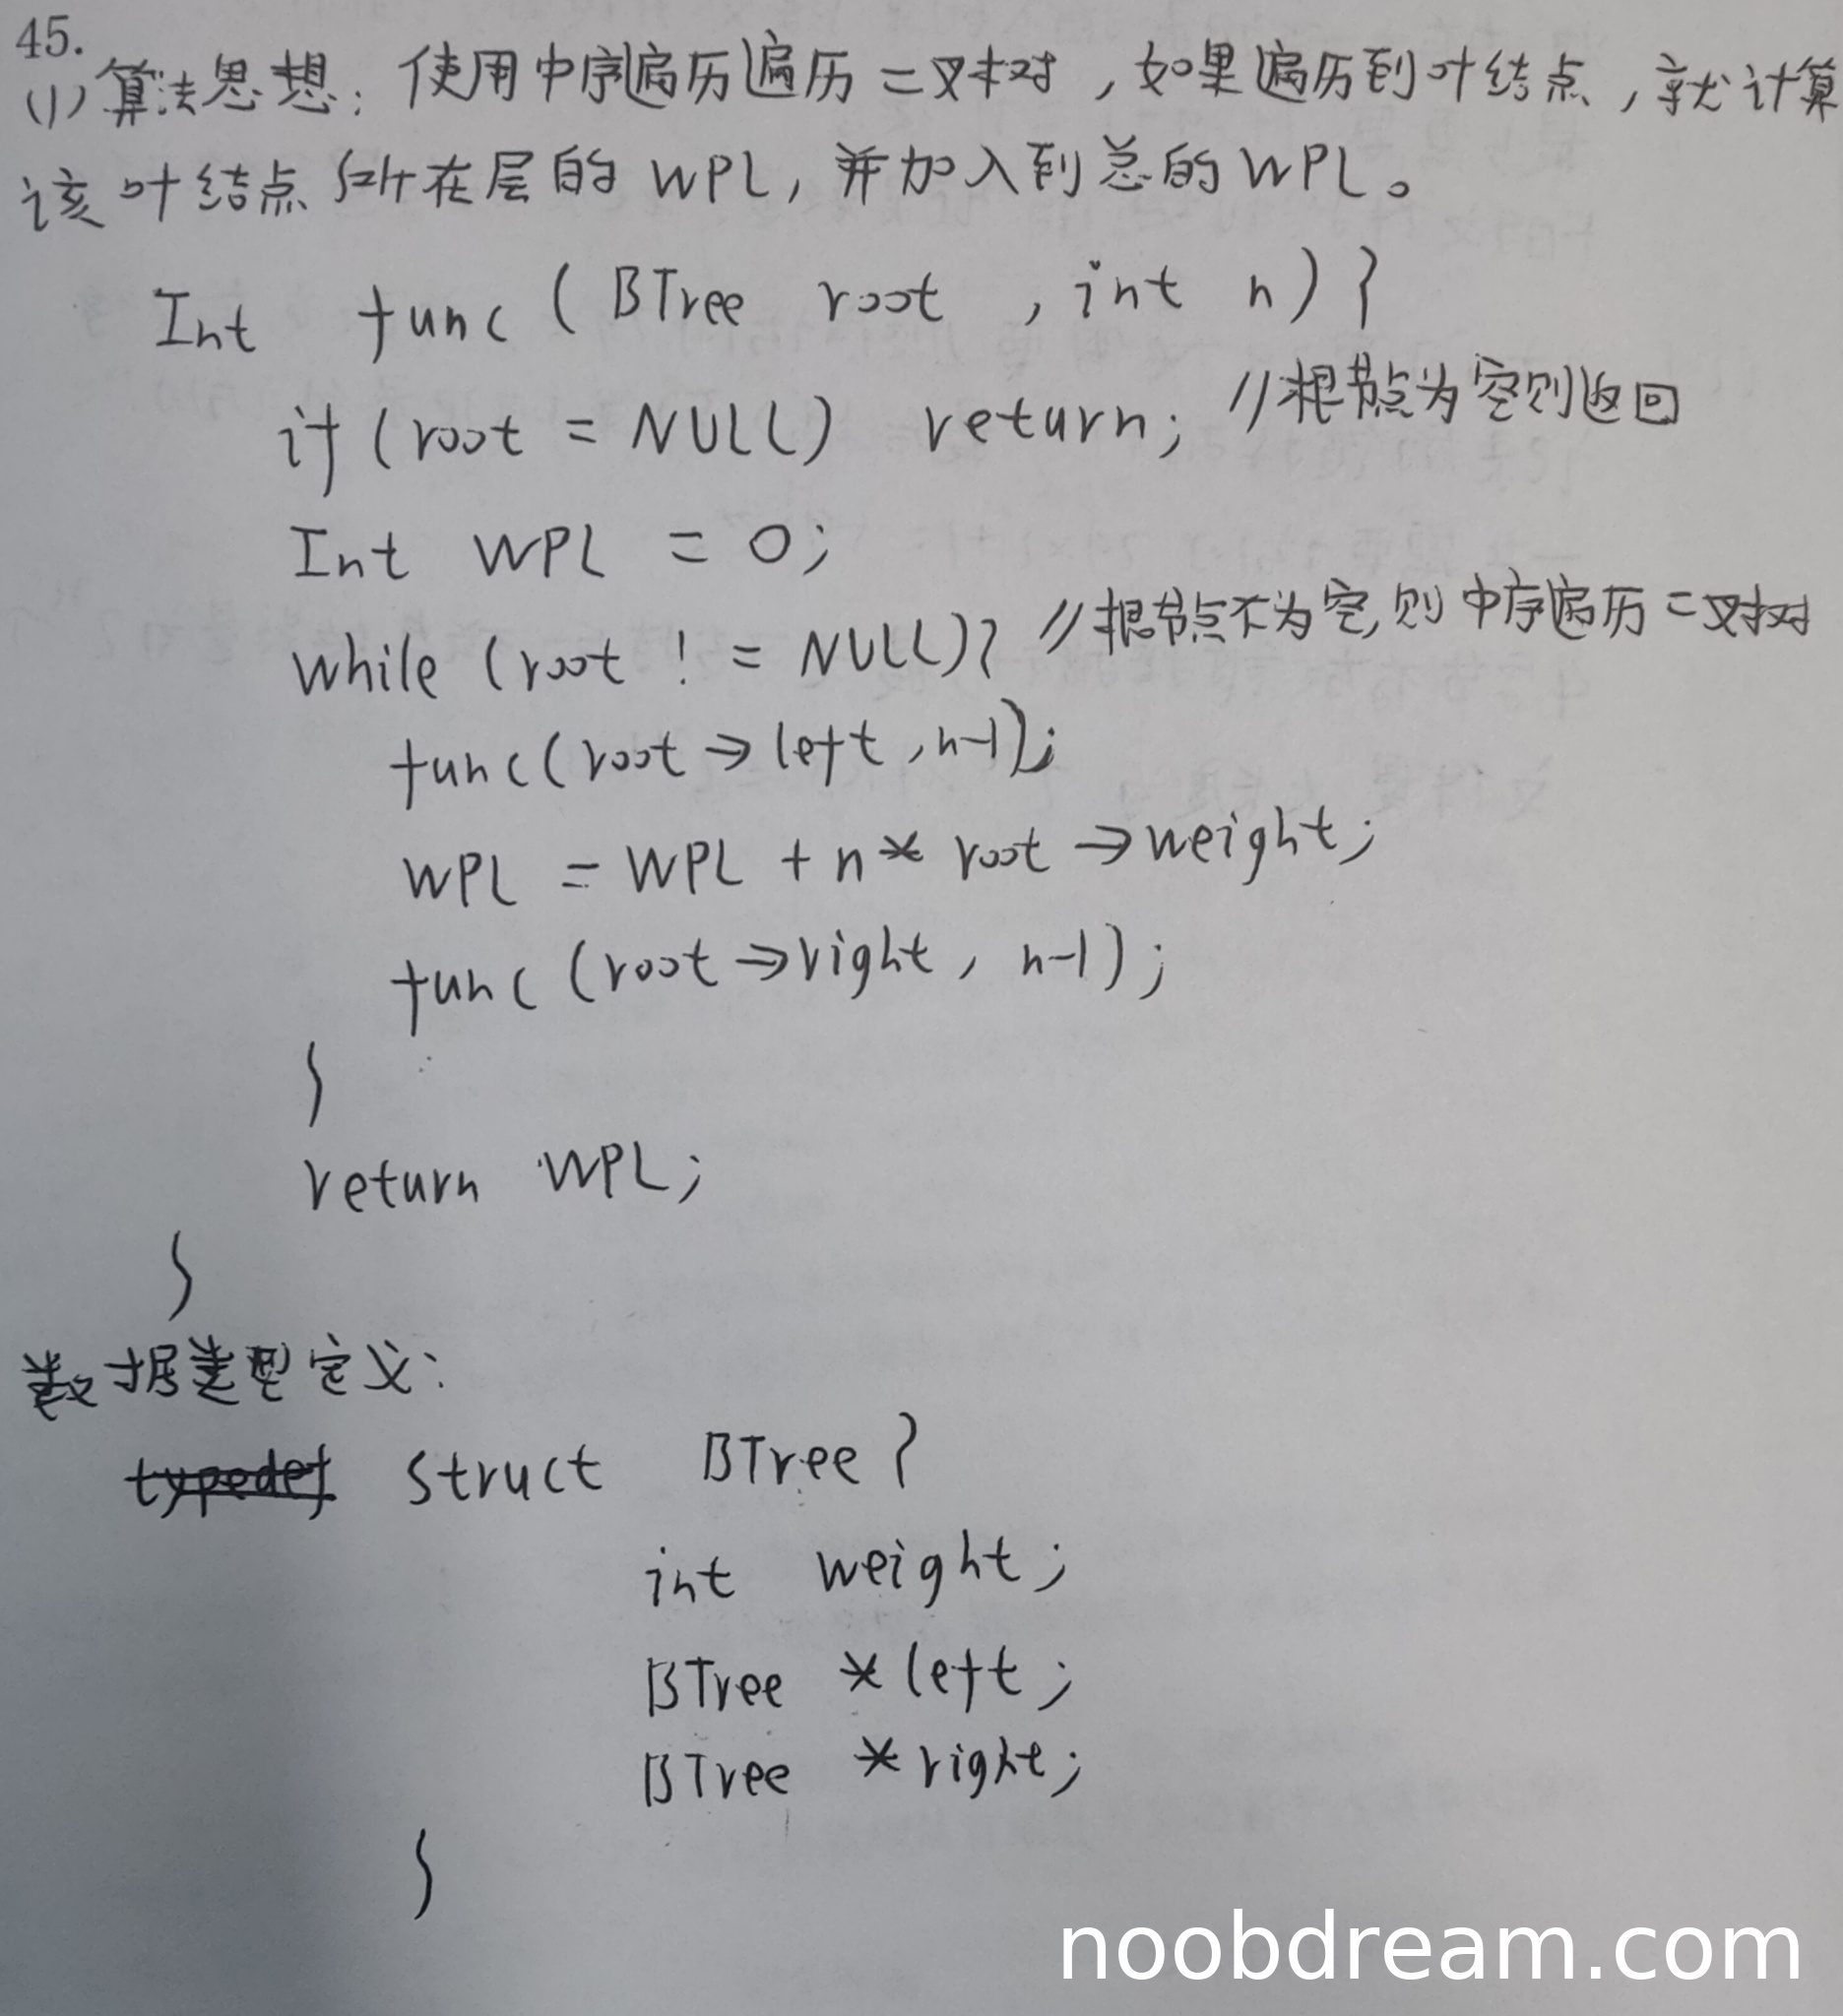 45.
(1)算法思想：使用中序遍历遍历二叉树，如果遍历到叶结点，就计算
该叶结点所在层的WPL，并加入到总的WPL。
Int func (BTree root , int n) {
if (root = NULL) return; //根节点为空则返回
Int WPL = 0;
while (root != NULL) { //根节点不为空,则中序遍历二叉树
func(root→left, n-1);
WPL = WPL + n * root→weight;
func (root→right, n-1);
}
return WPL;
}
数据类型定义:
typedef struct BTree {
int weight;
BTree *left;
BTree *right;
}
noobdream.com